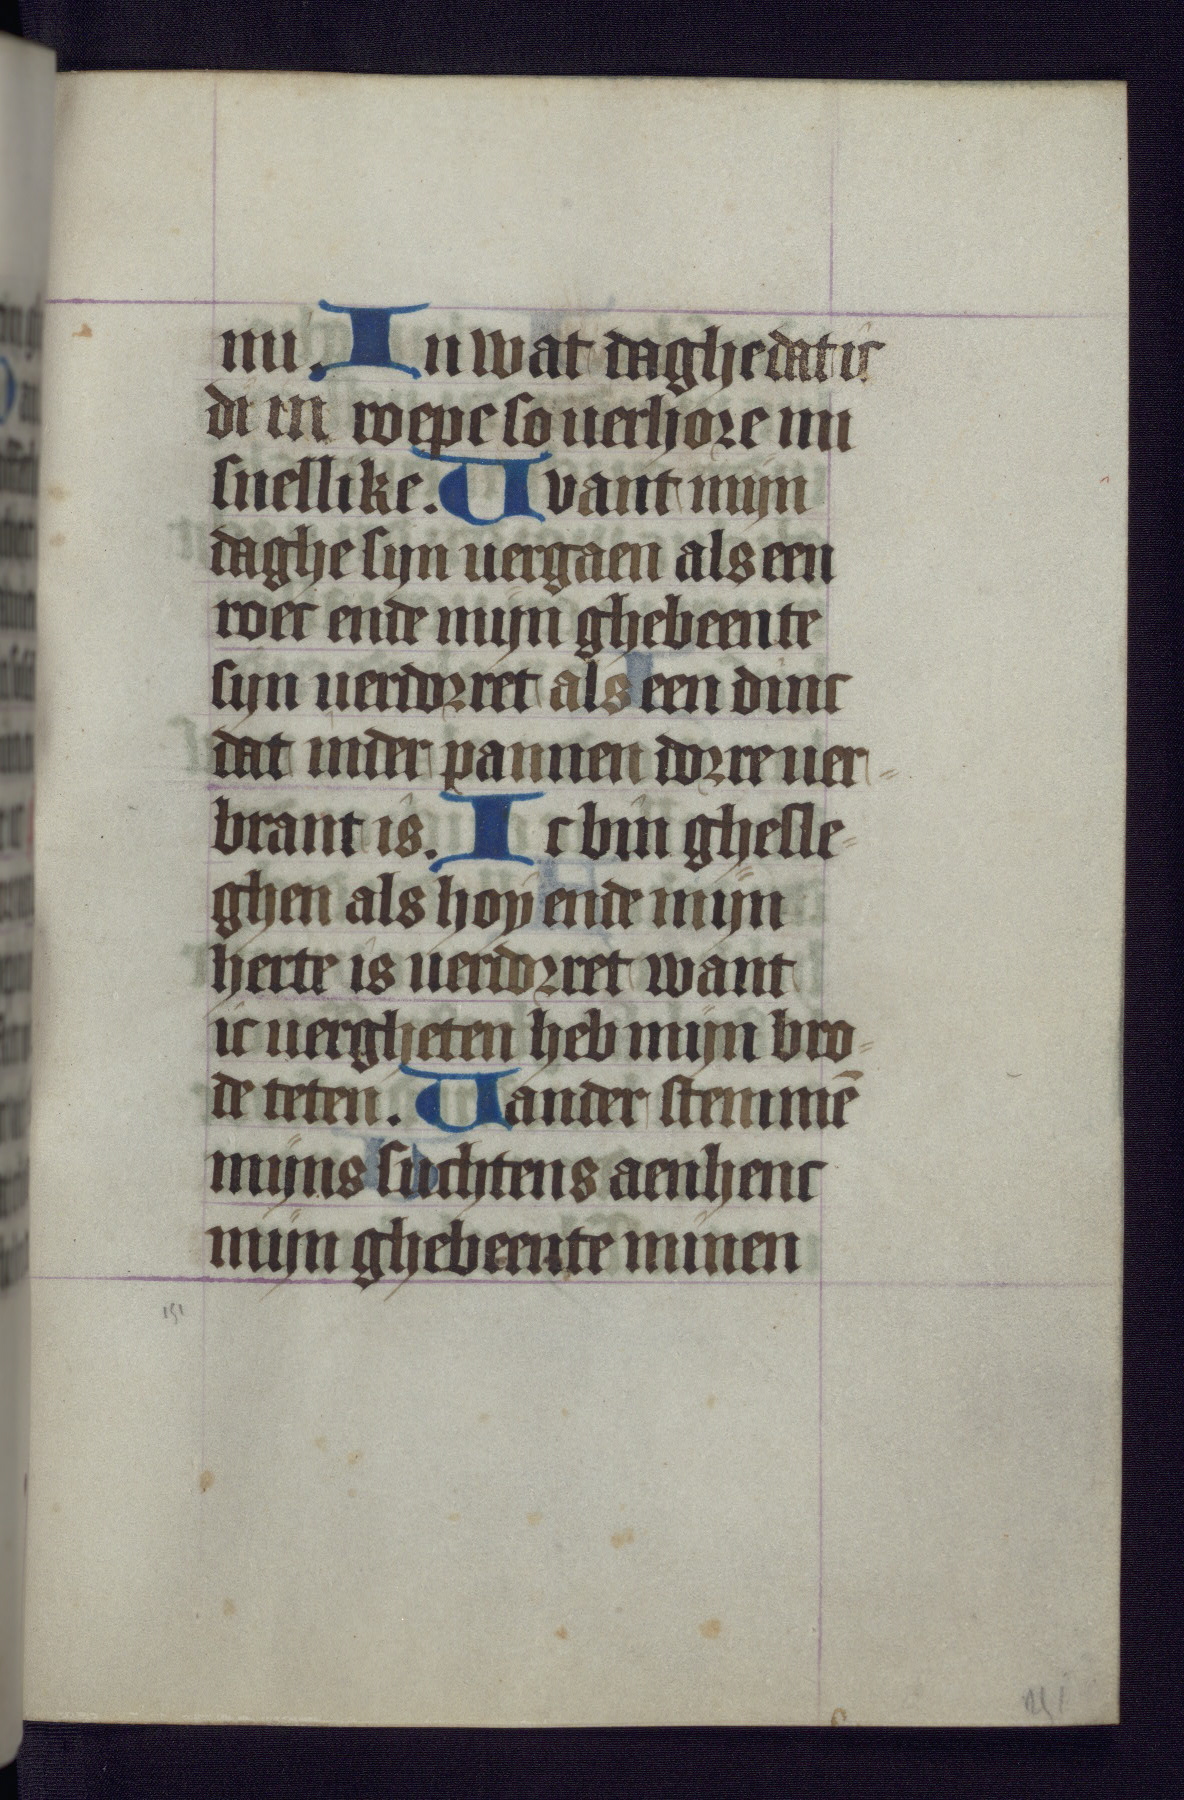 mi. In wat daghe dat ic
di in roepe so uerhore mi
snellike. Uvant mijn
daghe sijn uergaen als een
roec ende mijn ghebeente
sijn uerdorret als een dinc
dat inder pannen dorre uer=
brant is. Ic bin ghesle=
ghen als hoÿ ende mijn
herte is uerdorret want
ic uergheten heb mijn bro=
de teten. Uander stemmē
mijns suchtens aenhenc
mijn ghebeente minen
151